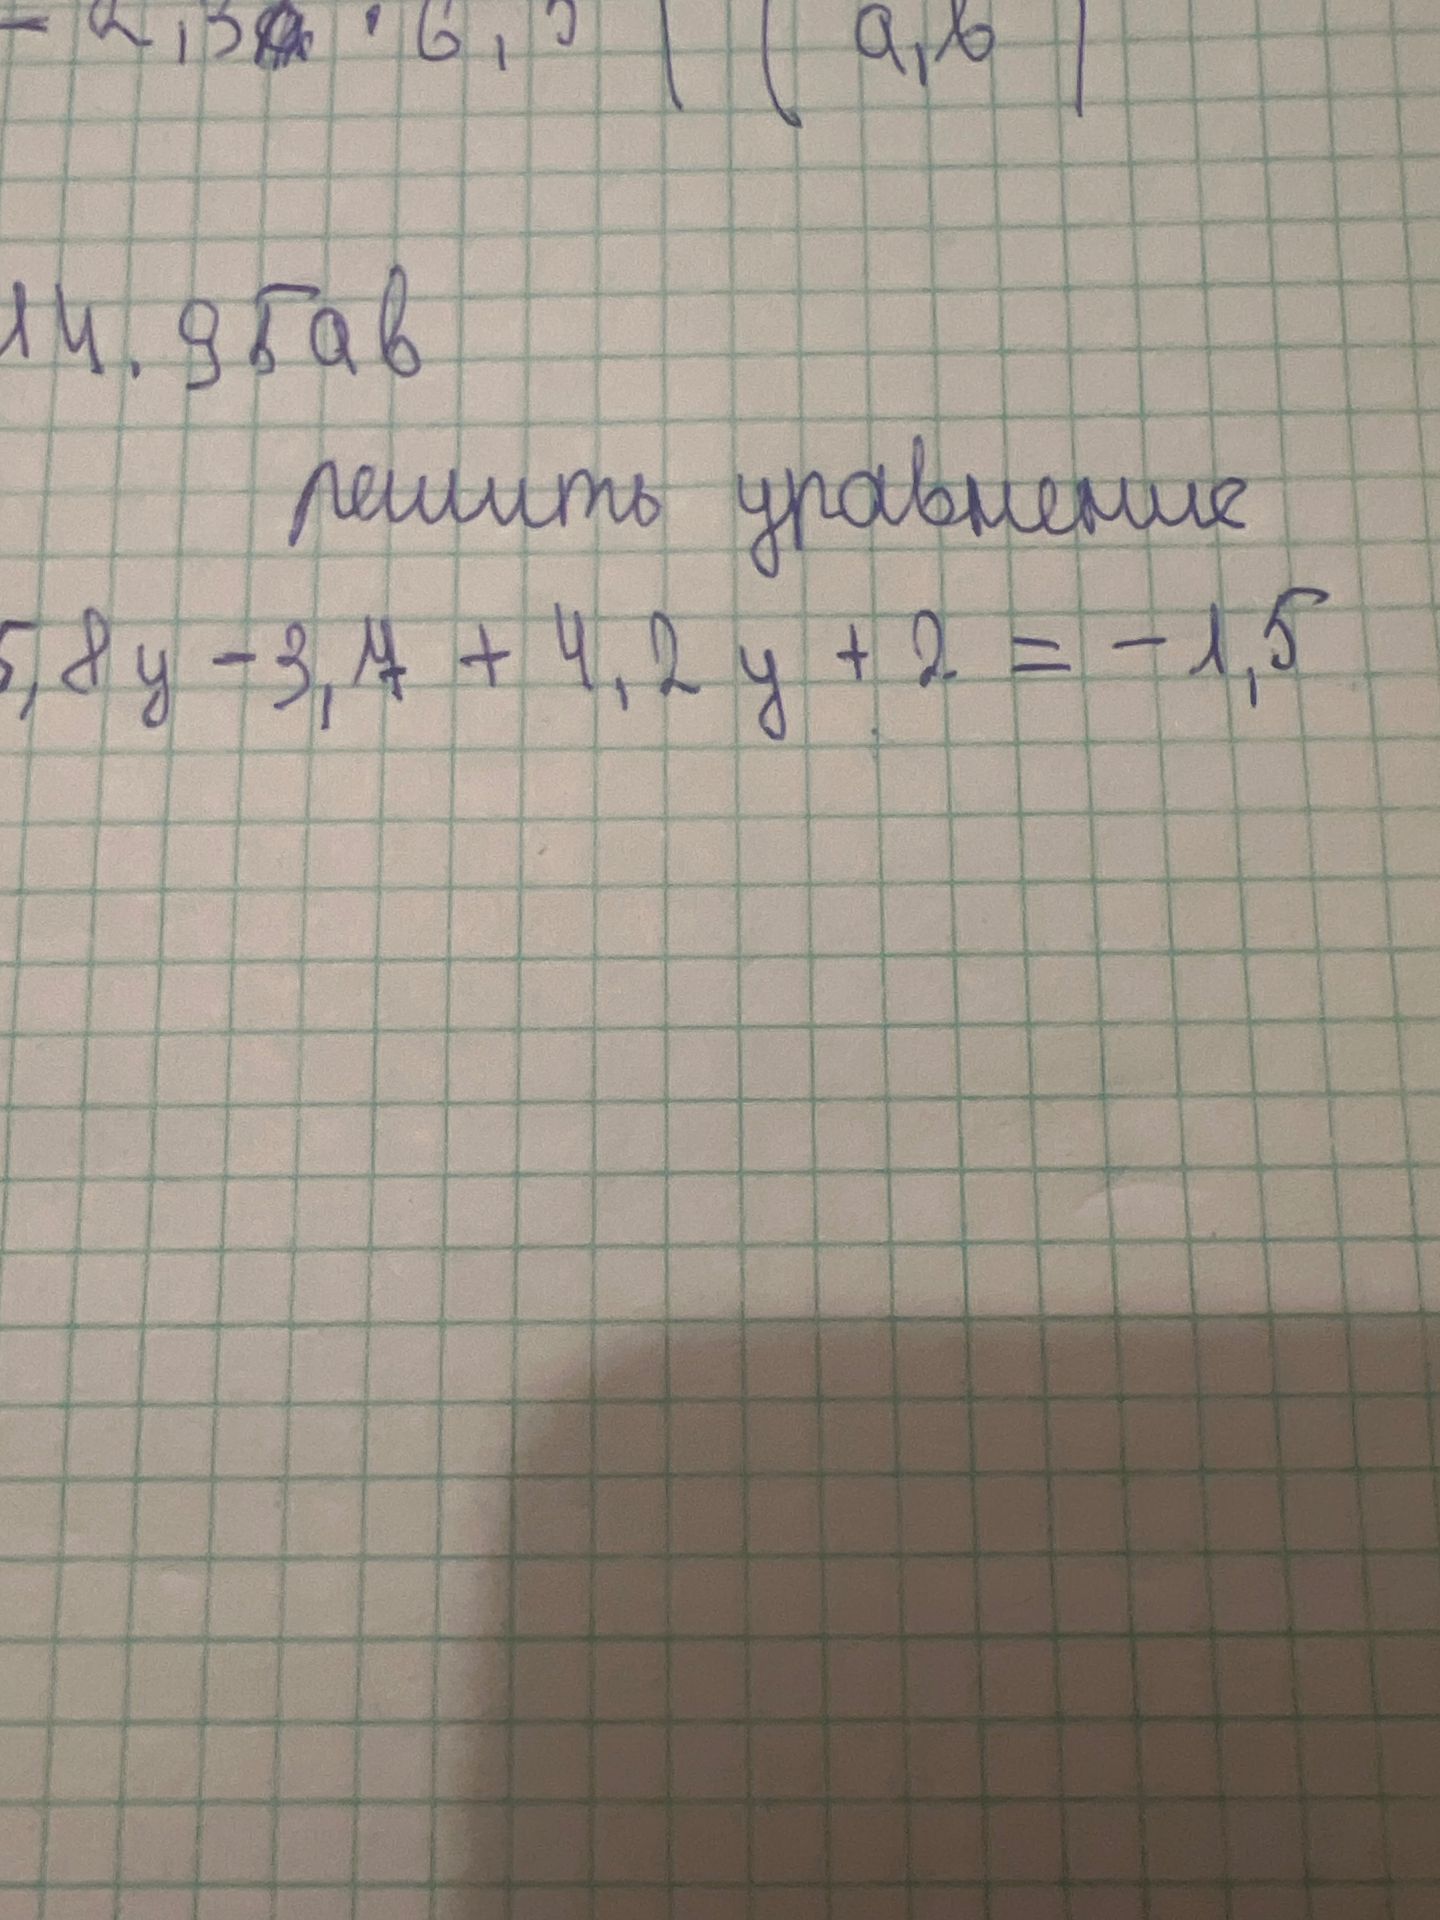 - 2,3 · 6,5 | ( a,b |
14.95ab
решить уравнение
5,8y - 3,7 + 4,2y + 2 = -1,5